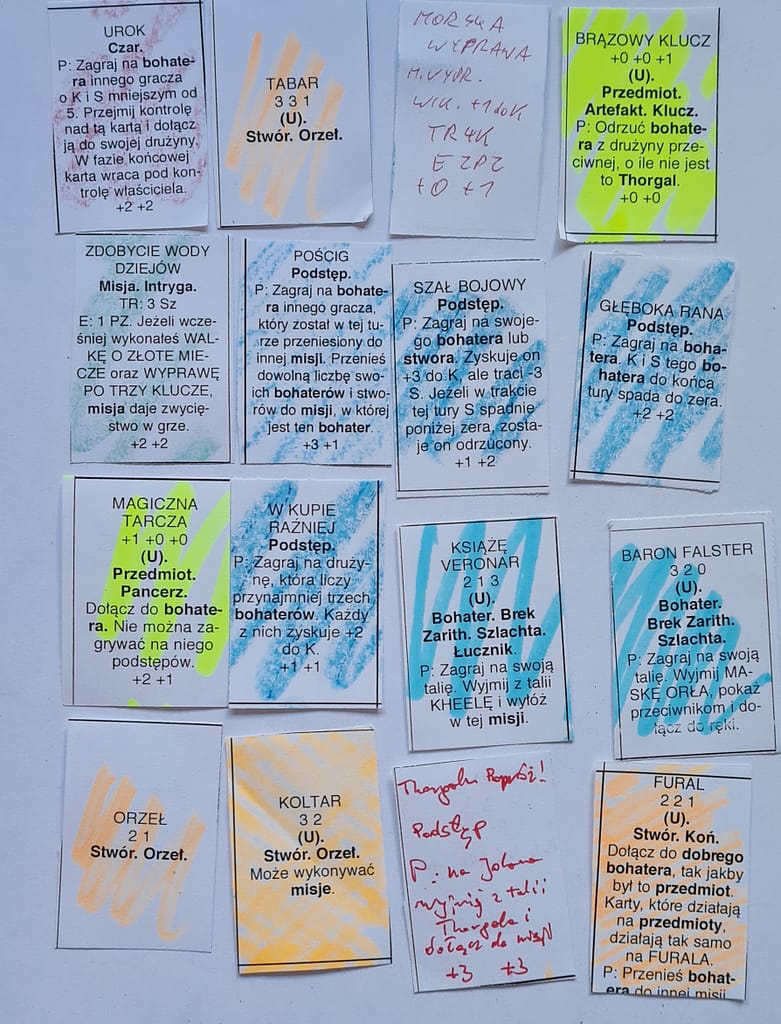 UROK
Czar.
P: Zagraj na bohate-
ra innego gracza
o K i S mniejszym od
5. Przejmij kontrolę
nad tą kartą i dołącz
ją do swojej drużyny.
W fazie końcowej
karta wraca pod kon-
trolę właściciela.
+2 +2
TABAR
3 3 1
(U).
Stwór. Orzeł.
MORSKA
WYPRAWA
M. WYPR.
WIK. +1 do K
TR 4K
E 2PZ
+0 +1
BRĄZOWY KLUCZ
+0 +0 +1
(U).
Przedmiot.
Artefakt. Klucz.
P: Odrzuć bohate-
ra z drużyny prze-
ciwnej, o ile nie jest
to Thorgal.
+0 +0
ZDOBYCIE WODY
DZIEJÓW
Misja. Intryga.
TR: 3 Sz
E: 1 PZ. Jeżeli wcze-
śniej wykonałeś WAL-
KĘ O ZŁOTE MIE-
CZE oraz WYPRAWĘ
PO TRZY KLUCZE,
misja daje zwycię-
stwo w grze.
+2 +2
POŚCIG
Podstęp.
P: Zagraj na bohate-
ra innego gracza,
który został w tej tu-
rze przeniesiony do
innej misji. Przenieś
dowolną liczbę swo-
ich bohaterów i stwo-
rów do misji, w której
jest ten bohater.
+3 +1
SZAŁ BOJOWY
Podstęp.
P: Zagraj na swoje-
go bohatera lub
stwora. Zyskuje on
+3 do K, ale traci -3
S. Jeżeli w trakcie
tej tury S spadnie
poniżej zera, zosta-
je on odrzucony.
+1 +2
GŁĘBOKA RANA
Podstęp.
P: Zagraj na boha-
tera. K i S tego bo-
hatera do końca
tury spada do zera.
+2 +2
MAGICZNA
TARCZA
+1 +0 +0
(U).
Przedmiot.
Pancerz.
Dołącz do bohate-
ra. Nie można za-
grywać na niego
podstępów.
+2 +1
W KUPIE
RAŹNIEJ
Podstęp.
P: Zagraj na druży-
nę, która liczy
przynajmniej trzech
bohaterów. Każdy
z nich zyskuje +2
do K.
+1 +1
KSIĄŻĘ
VERONAR
2 1 3
(U).
Bohater. Brek
Zarith. Szlachta.
Łucznik.
P: Zagraj na swoją
talię. Wyjmij z talii
KHEELĘ i wyłóż
w tej misji.
BARON FALSTER
3 2 0
(U).
Bohater.
Brek Zarith.
Szlachta.
P: Zagraj na swoją
talię. Wyjmij MA-
SKĘ ORŁA, pokaż
przeciwnikom i do-
łącz do ręki.
ORZEŁ
2 1
Stwór. Orzeł.
KOLTAR
3 2
(U).
Stwór. Orzeł.
Może wykonywać
misje.
Podstęp
P: na
wyjmij z talii
Thorgala i
dołącz do misji
+3 +3
FURAL
2 2 1
(U).
Stwór. Koń.
Dołącz do dobrego
bohatera, tak jakby
był to przedmiot.
Karty, które działają
na przedmioty,
działają tak samo
na FURALA.
P: Przenieś bohat-
era do innej misji